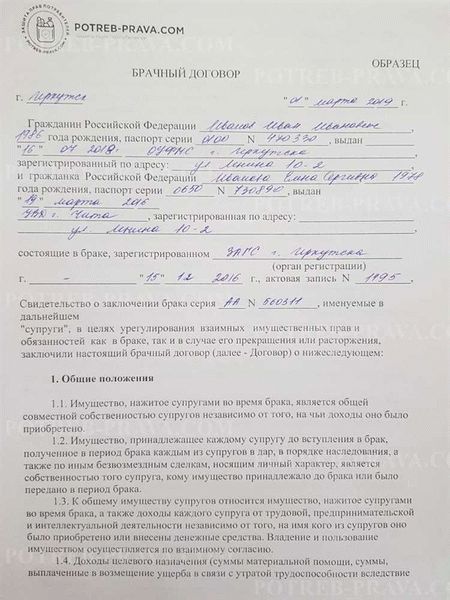 ЗАЩИТА ПРАВ ПОТРЕБИТЕЛЕЙ
POTREB-PRAVA.COM
POTREB-PRAVA.COM
ОБРАЗЕЦ
БРАЧНЫЙ ДОГОВОР
г. Иркутск "01" марта 2019 г.
Гражданин Российской Федерации Иванов Иван Иванович,
1986 года рождения, паспорт серии 0100 N 420330, выдан
"16" 04 2018 ОУФМС г. Иркутска
зарегистрированный по адресу: ул Мнина 10-2
и гражданка Российской Федерации Иванова Елена Сергеевна 1978
года рождения, паспорт серии 0650 N 730890, выдан
"19" марта 2016
УВД г. Чита, зарегистрированная по адресу:
ул. Мнина 10-2
состоящие в браке, зарегистрированном ЗАГС г. Иркутска
(орган регистрации)
г. - "15" 12 2016 г., актовая запись N 1195,
Свидетельство о заключении брака серия АА N 560311, именуемые в
дальнейшем
"супруги", в целях урегулирования взаимных имущественных прав и
обязанностей как в браке, так и в случае его прекращения или расторжения,
заключили настоящий брачный договор (далее - Договор) о нижеследующем:
1. Общие положения
1.1. Имущество, нажитое супругами во время брака, является общей
совместной собственностью супругов независимо от того, на чьи доходы оно было
приобретено.
1.2. Имущество, принадлежащее каждому супругу до вступления в брак,
полученное в период брака каждым из супругов в дар, в порядке наследования, а
также по иным безвозмездным сделкам, носящим личный характер, является
собственностью того супруга, кому имущество принадлежало до брака или было
передано в период брака.
1.3. К общему имуществу супругов относится имущество, нажитое супругами
во время брака, а также доходы каждого супруга от трудовой, предпринимательской
и интеллектуальной деятельности независимо от того, на имя кого из супругов оно
было приобретено или внесены денежные средства. Владение и пользование
имуществом осуществляется по взаимному согласию.
1.4. Доходы целевого назначения (суммы материальной помощи, суммы,
выплаченные в возмещение ущерба в связи с утратой трудоспособности вследствие